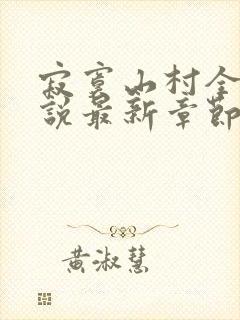 寂寞山村全
說最新章節
黄淑慧